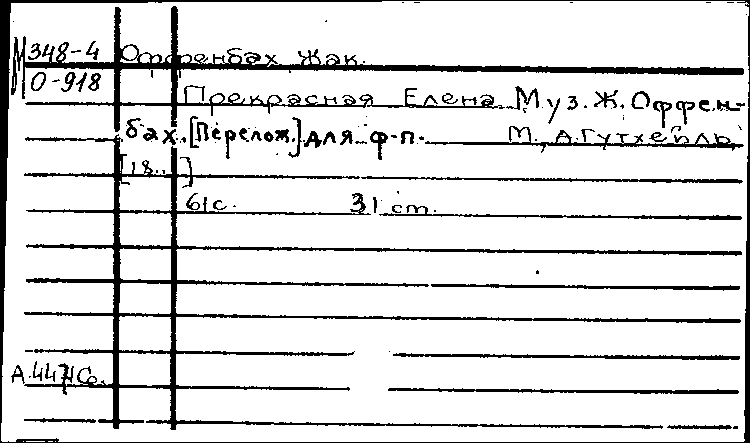 М 348-4 Оффенбах Жак.
О-918
Прекрасная Елена Муз. Ж. Оффен-
бах. [Перелож.] для ф-п. М., А. Гутхейль,
[18..]
61с. 31 cm.